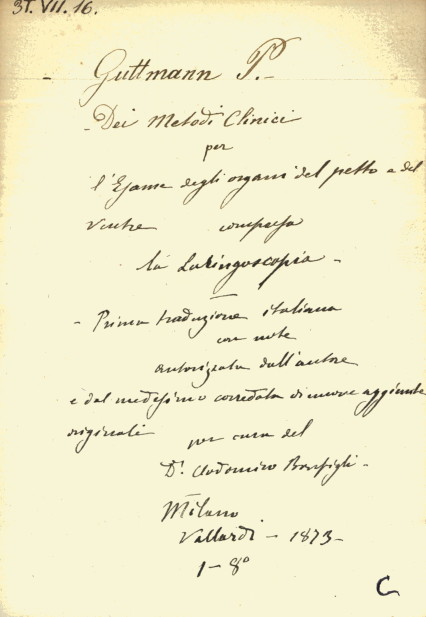 37. VII. 16.
Guttmann P.-
- Dei Metodi Clinici
per
l'Esame degli organi del petto e del
Ventre compresa
la Laringoscopia -
- Prima traduzione italiana
con note
autorizzata dall'autore
e dal medesimo corredata di nuove aggiunte
originali per cura del
Dr. Clodomiro Bonfigli -
Milano
Vallardi - 1873 -
1 - 8°
C